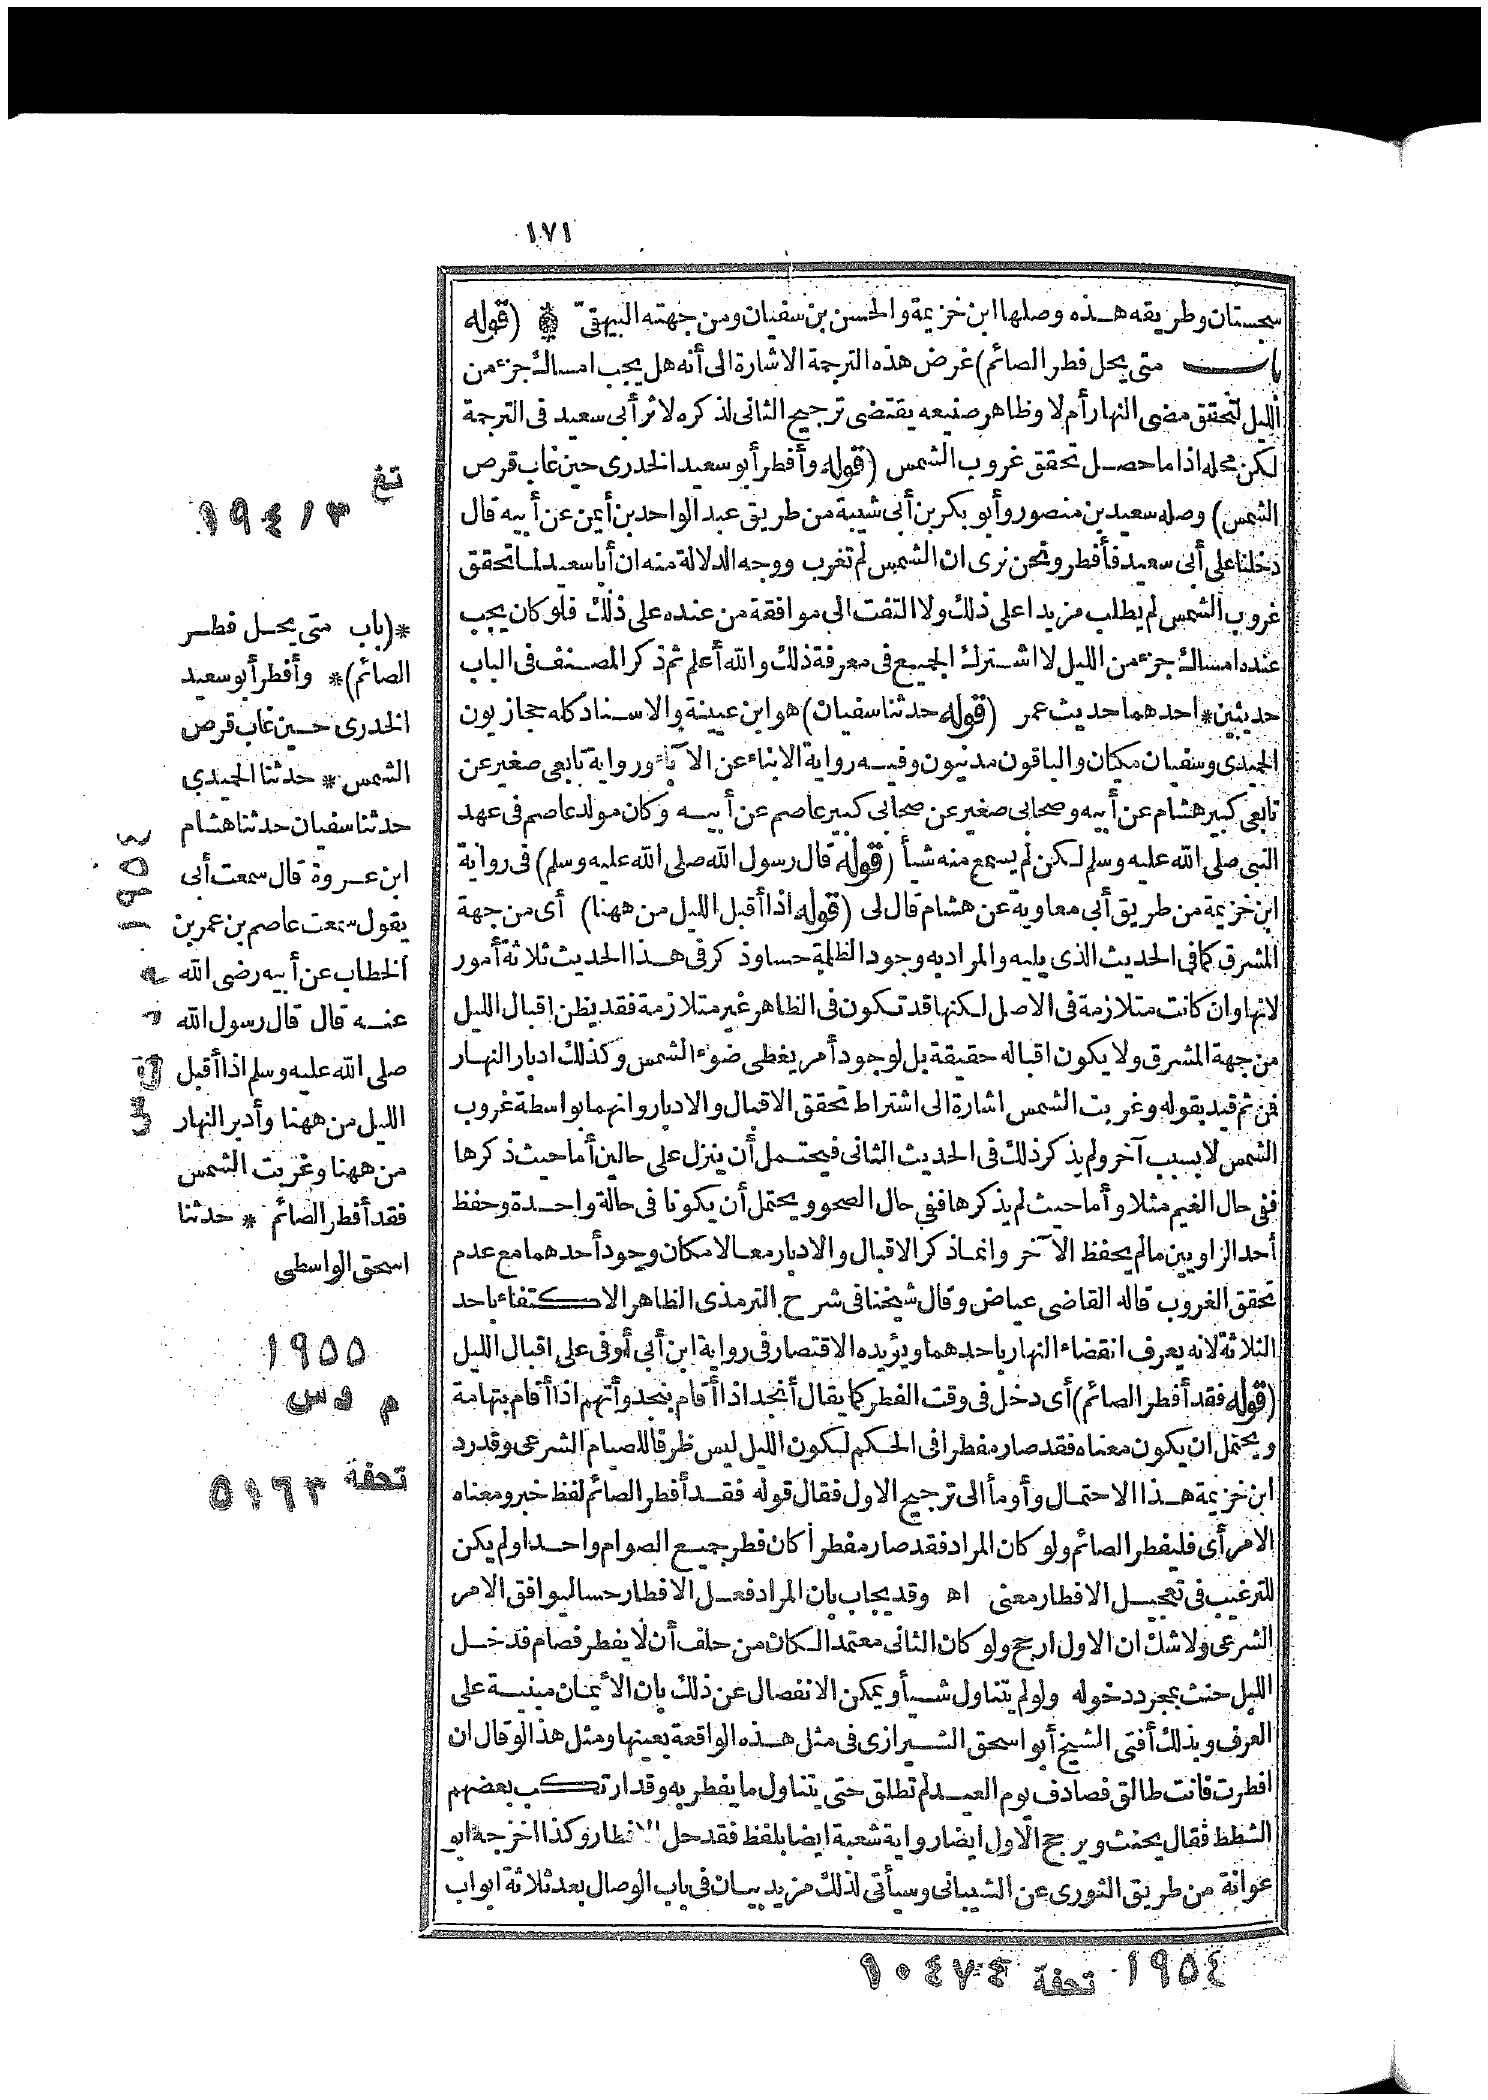 ١٧١
سجستان وطريقه هذه وصلها ابن خزيمة والحسن بن سفيان ومن جهته البيهقى ﴿ (قوله
باب متى يحل فطر الصائم) غرض هذه الترجمة الاشارة الى أنه هل يجب امساك جزء من
الليل لتحقق مضى النهار أم لا وظاهر صنيعه يقتضى ترجيح الثانى لذكره لاثر أبى سعيد فى الترجمة
لكن محله اذا ما حصل تحقق غروب الشمس (قوله وأفطر أبو سعيد الخدرى حين غاب قرص
الشمس) وصله سعيد بن منصور وأبو بكر بن أبى شيبة من طريق عبد الواحد بن أيمن عن أبيه قال
دخلنا على أبى سعيد فأفطر ونحن نرى ان الشمس لم تغرب ووجه الدلالة منه ان أبا سعيد لما تحقق
غروب الشمس لم يطلب مزيدا على ذلك ولا التفت الى موافقة من عنده على ذلك فلو كان يجب
عنده امساك جزء من الليل لا اشترك الجميع فى معرفة ذلك والله أعلم ثم ذكر المصنف فى الباب
حديثين * احدهما حديث عمر (قوله حدثنا سفيان) هو ابن عيينة والاسناد كله حجازيون
الحميدى وسفيان مكيان والباقون مدنيون وفيه رواية الابناء عن الآباء ورواية تابعى صغير عن
تابعى كبير هشام عن أبيه وصحابى صغير عن صحابى كبير عاصم عن أبيه وكان مولد عاصم فى عهد
النبى صلى الله عليه وسلم لكن لم يسمع منه شيأ (قوله قال رسول الله صلى الله عليه وسلم) فى رواية
ابن خزيمة من طريق أبى معاوية عن هشام قال لى (قوله اذا أقبل الليل من ههنا) أى من جهة
المشرق كما فى الحديث الذى يليه والمراد به وجود الظلمة حسا وذكر فى هذا الحديث ثلاثة أمور
لانها وان كانت متلازمة فى الاصل لكنها قد تكون فى الظاهر غير متلازمة فقد يظن اقبال الليل
من جهة المشرق ولا يكون اقباله حقيقة بل لوجود أمر يغطى ضوء الشمس وكذلك ادبار النهار
فمن ثم قيد بقوله وغربت الشمس اشارة الى اشتراط تحقق الاقبال والادبار وانهما بواسطة غروب
الشمس لا بسبب آخر ولم يذكر ذلك فى الحديث الثانى فيحتمل أن ينزل على حالين أما حيث ذكرها
ففى حال الغيم مثلا وأما حيث لم يذكرها ففى حال الصحو ويحتمل أن يكونا فى حالة واحدة وحفظ
أحد الراويين ما لم يحفظ الآخر وانما ذكر الاقبال والادبار معا لامكان وجود أحدهما مع عدم
تحقق الغروب قاله القاضى عياض وقال شيخنا فى شرح الترمذى الظاهر الاكتفاء باحد
الثلاثة لانه يعرف انقضاء النهار باحدهما ويؤيده الاقتصار فى رواية ابن أبى أوفى على اقبال الليل
(قوله فقد أفطر الصائم) أى دخل فى وقت الفطر كما يقال أنجد اذا أقام بنجد وأتهم اذا أقام بتهامة
ويحتمل ان يكون معناه فقد صار مفطرا فى الحكم لكون الليل ليس ظرفا للصيام الشرعى وقد رد
ابن خزيمة هذا الاحتمال وأومأ الى ترجيح الاول فقال قوله فقد أفطر الصائم لفظ خبر ومعناه
الامر أى فليفطر الصائم ولو كان المراد فقد صار مفطرا كان فطر جميع الصوام واحدا ولم يكن
للترغيب فى تعجيل الافطار معنى اه وقد يجاب بان المراد فعل الافطار حسا ليوافق الامر
الشرعى ولا شك ان الاول ارجح ولو كان الثانى معتمدا لكان من حلف أن لا يفطر فصام فدخل
الليل حنث بمجرد دخوله ولو لم يتناول شيأ ويمكن الانفصال عن ذلك بان الأيمان مبنية على
العرف وبذلك أفتى الشيخ أبو اسحق الشيرازى فى مثل هذه الواقعة بعينها ومثل هذا لو قال ان
افطرت فانت طالق فصادف يوم العيد لم تطلق حتى يتناول ما يفطر به وقد ارتكب بعضهم
الشطط فقال يحنث ويرجح الاول ايضا رواية شعبة ايضا بلفظ فقد حل الافطار وكذا اخرجه ابو
عوانة من طريق الثورى عن الشيبانى وسيأتى لذلك مزيد بيان فى باب الوصال بعد ثلاثة ابواب
تغ
١٩٤/٣
*(باب متى يحل فطر
الصائم)* وأفطر أبو سعيد
الخدرى حين غاب قرص
الشمس * حدثنا الحميدى
حدثنا سفيان حدثنا هشام
ابن عروة قال سمعت أبى
يقول سمعت عاصم بن عمر بن
الخطاب عن أبيه رضى الله
عنه قال قال رسول الله
صلى الله عليه وسلم اذا أقبل
الليل من ههنا وأدبر النهار
من ههنا وغربت الشمس
فقد أفطر الصائم * حدثنا
اسحق الواسطى
١٩٥٤
١٩٥٥
م د س
تحفة ٥١٦٣
١٩٥٤ تحفة ١٠٤٧٤